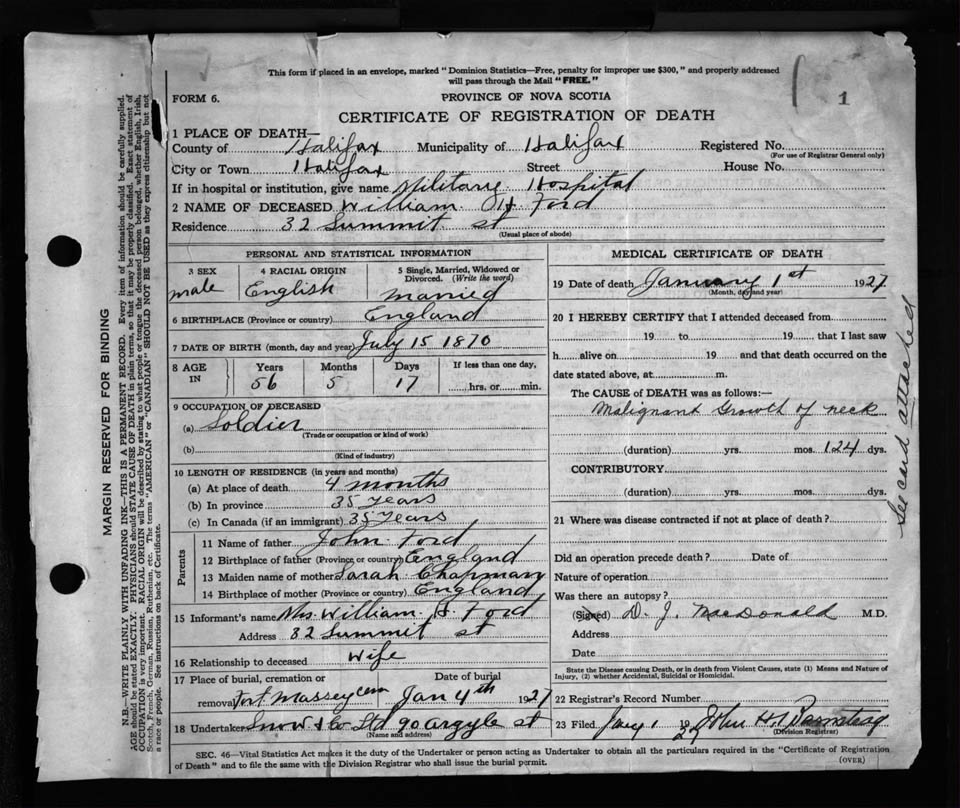 This form if placed in an envelope, marked "Dominion Statistics—Free, penalty for improper use $300," and properly addressed
will pass through the Mail "FREE."
1
FORM 6.
PROVINCE OF NOVA SCOTIA
CERTIFICATE OF REGISTRATION OF DEATH
1 PLACE OF DEATH—
County of Halifax Municipality of Halifax Registered No.
(For use of Registrar General only)
City or Town Halifax Street House No.
If in hospital or institution, give name Military Hospital
2 NAME OF DECEASED William H Ford
Residence 32 Summit st
(Usual place of abode)
PERSONAL AND STATISTICAL INFORMATION
3 SEX 4 RACIAL ORIGIN 5 Single, Married, Widowed or
Divorced. (Write the word)
male English Married
6 BIRTHPLACE (Province or country) England
7 DATE OF BIRTH (month, day and year) July 15 1870
8 AGE IN Years Months Days If less than one day,
56 5 17 hrs. or min.
9 OCCUPATION OF DECEASED
(a) Soldier
(Trade or occupation or kind of work)
(b)
(Kind of industry)
10 LENGTH OF RESIDENCE (in years and months)
(a) At place of death 4 months
(b) In province 35 years
(c) In Canada (if an immigrant) 35 Years
Parents
11 Name of father John Ford
12 Birthplace of father (Province or country) England
13 Maiden name of mother Sarah Chapman
14 Birthplace of mother (Province or country) England
15 Informant's name Mrs William H. Ford
Address 32 Summit st
16 Relationship to deceased Wife
17 Place of burial, cremation or Date of burial
removal Fort Massey cem Jan 4th 1927
18 Undertaker Snow & Co Ltd 90 argyle st
(Name and address)
MEDICAL CERTIFICATE OF DEATH
19 Date of death January 1st 1927
(Month, day and year)
20 I HEREBY CERTIFY that I attended deceased from
19 to 19 , that I last saw
h alive on 19 and that death occurred on the
date stated above, at m.
The CAUSE of DEATH was as follows:—
Malignant Growth of neck
(duration) yrs. mos. 124 dys.
CONTRIBUTORY
(duration) yrs. mos. dys.
21 Where was disease contracted if not at place of death?
Did an operation precede death? Date of
Nature of operation
Was there an autopsy?
(Signed) D. J. MacDonald M.D.
Address
Date
State the Disease causing Death, or in death from Violent Causes, state (1) Means and Nature of
Injury, (2) whether Accidental, Suicidal or Homicidal.
22 Registrar's Record Number
23 Filed Jany 1 1927 John H.
(Division Registrar)
See card attached
SEC. 46—Vital Statistics Act makes it the duty of the Undertaker or person acting as Undertaker to obtain all the particulars required in the "Certificate of Registration
of Death" and to file the same with the Division Registrar who shall issue the burial permit.
(OVER)
MARGIN RESERVED FOR BINDING
N.B.—WRITE PLAINLY WITH UNFADING INK—THIS IS A PERMANENT RECORD. Every item of information should be carefully supplied.
AGE should be stated EXACTLY. PHYSICIANS should STATE CAUSE OF DEATH in plain terms, so that it may be properly classified. Exact statement of
OCCUPATION is very important. RACIAL ORIGIN will be described by stating to what people or tongue the deceased person belonged, whether English, Irish,
Scotch, French, German, Russian, Ruthenian, etc. The terms "AMERICAN" or "CANADIAN" SHOULD NOT BE USED as they express citizenship but not
a race or people. See instructions on back of Certificate.